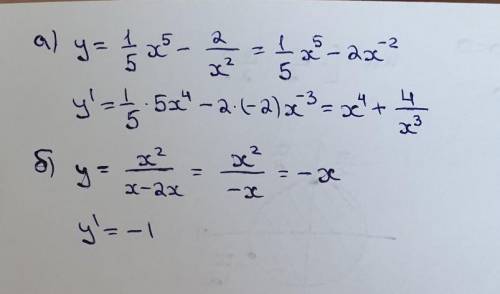 а) y = 1/5 x⁵ - 2/x² = 1/5 x⁵ - 2x⁻²
y' = 1/5 · 5x⁴ - 2·(-2)x⁻³ = x⁴ + 4/x³
б) y = x²/(x-2x) = x²/-x = -x
y' = -1